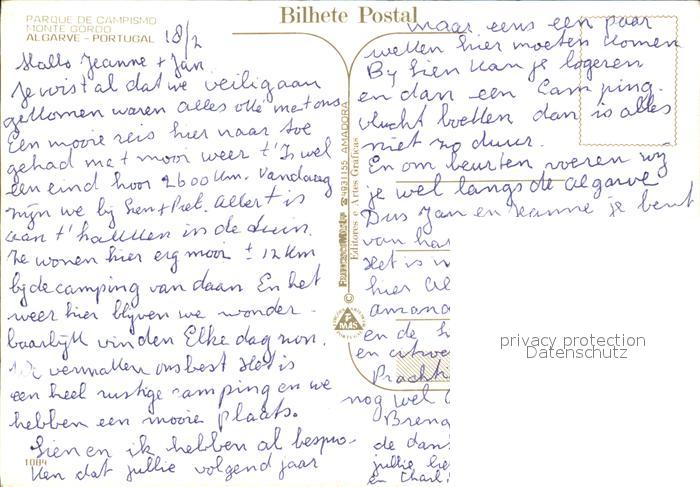 Bilhete Postal
PARQUE DE CAMPISMO
MONTE GORDO
ALGARVE - PORTUGAL
18/2
Hallo Jeanne + Jan
Je voist al dat we veilig aan
gekomen waren alles oké met ons
Een mooie reis hier naar toe
gehad met mooi weer t' Is wel
een eind hoor 2600 km. Vandaag
zijn we bij Sien + Piet. Allert is
aan t' hakken in de tuin.
Ze wonen hier erg mooi ± 12 km
bij de camping van daan En het
weer hier blijven we wonder-
baarlijk vinden Elke dag zon.
vermaken ons best Het is
een heel rustige camping en we
hebben een mooie plaats.
Sien en ik hebben al bespro-
ken dat jullie volgend jaar
1084
maar eens een paar
weken hier moeten komen
By Sien kan je logeren
en dan een Camping
vlucht boeken dan is alles
niet zo duur.
En om beurten voeren wy
je wel langs de algarve
Dus Jan en Jeanne je bent
van har
Het is
hier
amand
en de
en
Pracht
nog wel
Breng
de dan
jullie
en Charl
4931155 AMADORA
Editores e Artes Gráficas
©
MAS
PORTUGAL
privacy protection
Datenschutz